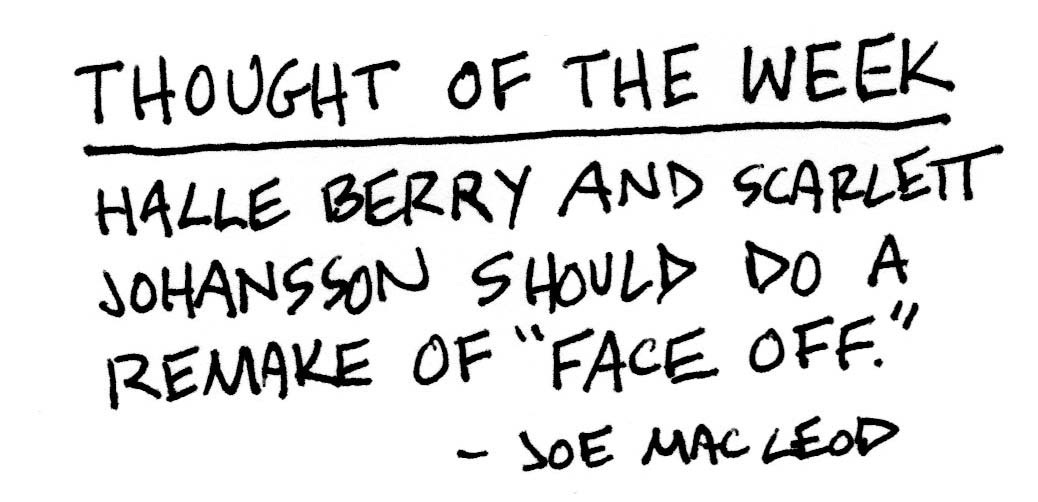 THOUGHT OF THE WEEK
HALLE BERRY AND SCARLETT
JOHANSSON SHOULD DO A
REMAKE OF "FACE OFF."
- JOE MACLEOD